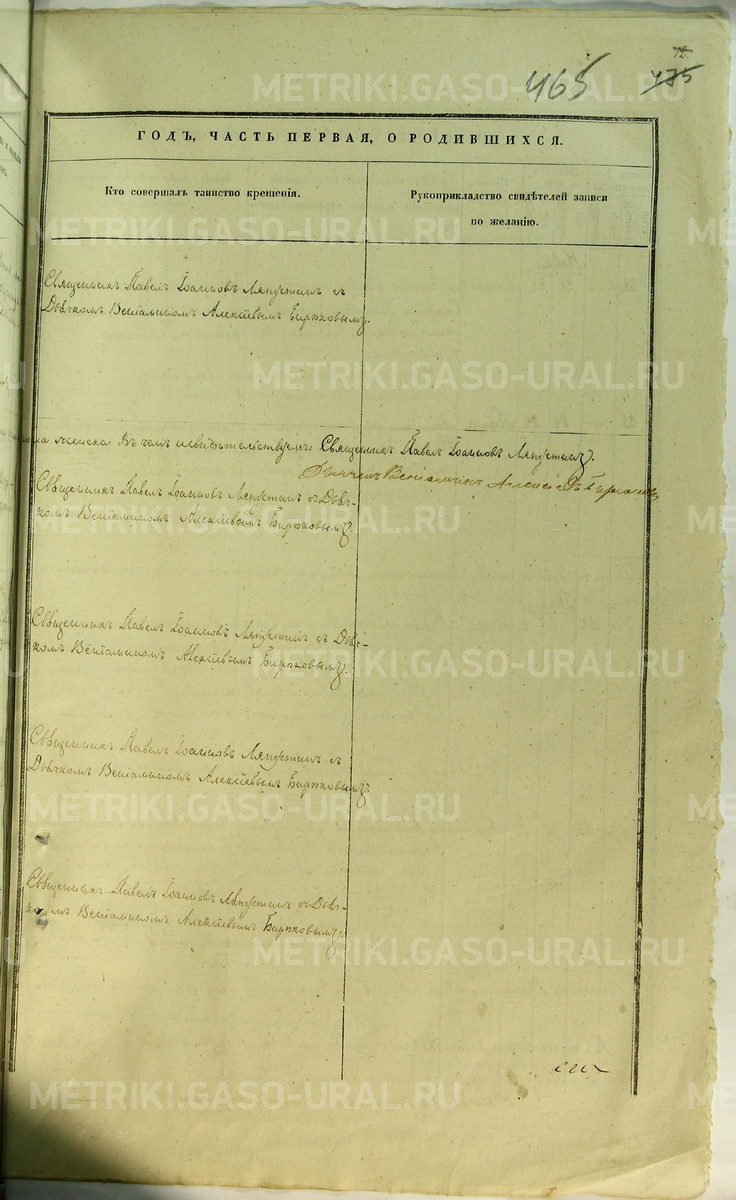 12.
465 475
ГОДЪ, ЧАСТЬ ПЕРВАЯ, О РОДИВШИХСЯ.
Кто совершалъ таинство крещенія.
Рукоприкладство свидѣтелей записи
по желанію.
Священникъ Павелъ Іоанновъ Ляпустинъ съ
Дьячкомъ Веніаминомъ Алексѣевымъ Бирюковымъ.
Въ чемъ и свидѣтельствуемъ: Священникъ Павелъ Іоанновъ Ляпустинъ.
Дьячекъ Веніаминъ Алексѣевъ Бирюковъ
Священникъ Павелъ Іоанновъ Ляпустинъ съ Дьяч-
комъ Веніаминомъ Алексѣевымъ Бирюковымъ.
Священникъ Павелъ Іоанновъ Ляпустинъ съ Дьяч-
комъ Веніаминомъ Алексѣевымъ Бирюковымъ.
Священникъ Павелъ Іоанновъ Ляпустинъ съ
Дьячкомъ Веніаминомъ Алексѣевымъ Бирюковымъ.
Священникъ Павелъ Іоанновъ Ляпустинъ съ Дьяч-
комъ Веніаминомъ Алексѣевымъ Бирюковымъ.
METRIKI.GASO-URAL.RU